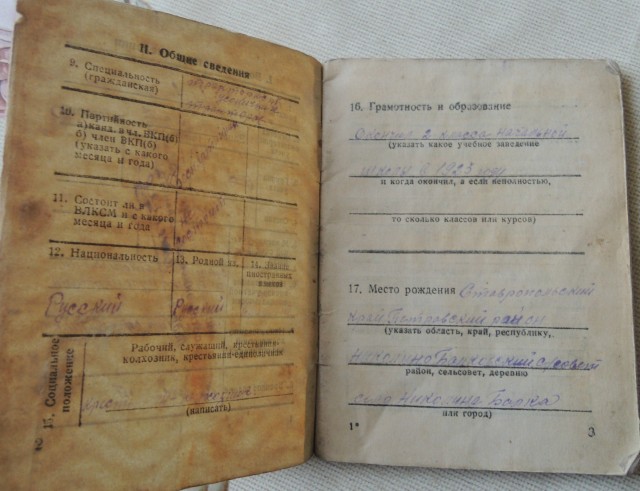 II. Общие сведения
9. Специальность
(гражданская)
10. Партийность
а) канд. в чл. ВКП(б)
б) член ВКП(б)
(указать с какого
месяца и года)
11. Состоит ли в
ВЛКСМ и с какого
месяца и года
12. Национальность
13. Родной яз.
14. Знание
иностранных
языков
Русский
Русский
15. Социальное
положение
Рабочий, служащий, крестьянин-
колхозник, крестьянин-единоличник
(написать)
16. Грамотность и образование
Окончил 2 класса начальной
(указать какое учебное заведение
школы в 1923 году
и когда окончил, а если неполностью,
то сколько классов или курсов)
17. Место рождения Ставропольский
край Петровский район
(указать область, край, республику,
Николино Балковский с/совет
район, сельсовет, деревню
село Николина Балка
или город)
1*
3